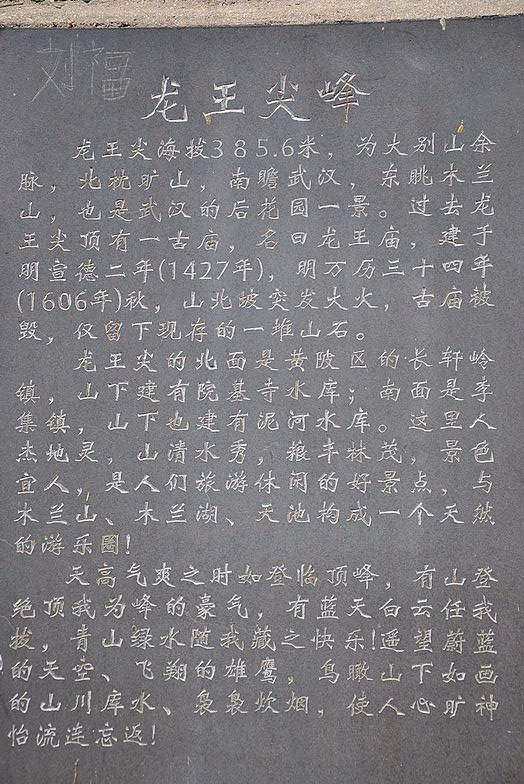 刘福
龙王尖峰
龙王尖海拔385.6米，为大别山余
脉，北枕旷山，南瞻武汉，东眺木兰
山，也是武汉的后花园一景。过去龙
王尖顶有一古庙，名曰龙王庙，建于
明宣德二年(1427年)，明万历三十四年
(1606年)秋，山北坡突发大火，古庙被
毁，仅留下现存的一堆山石。
龙王尖的北面是黄陂区的长轩岭
镇，山下建有院基寺水库；南面是李
集镇，山下也建有泥河水库。这里人
杰地灵，山清水秀，粮丰林茂，景色
宜人，是人们旅游休闲的好景点，与
木兰山、木兰湖、天池构成一个天然
的游乐圈！
天高气爽之时如登临顶峰，有山登
绝顶我为峰的豪气，有蓝天白云任我
拔，青山绿水随我藏之快乐！遥望蔚蓝
的天空、飞翔的雄鹰，鸟瞰山下如画
的山川库水、袅袅炊烟，使人心旷神
怡流连忘返！